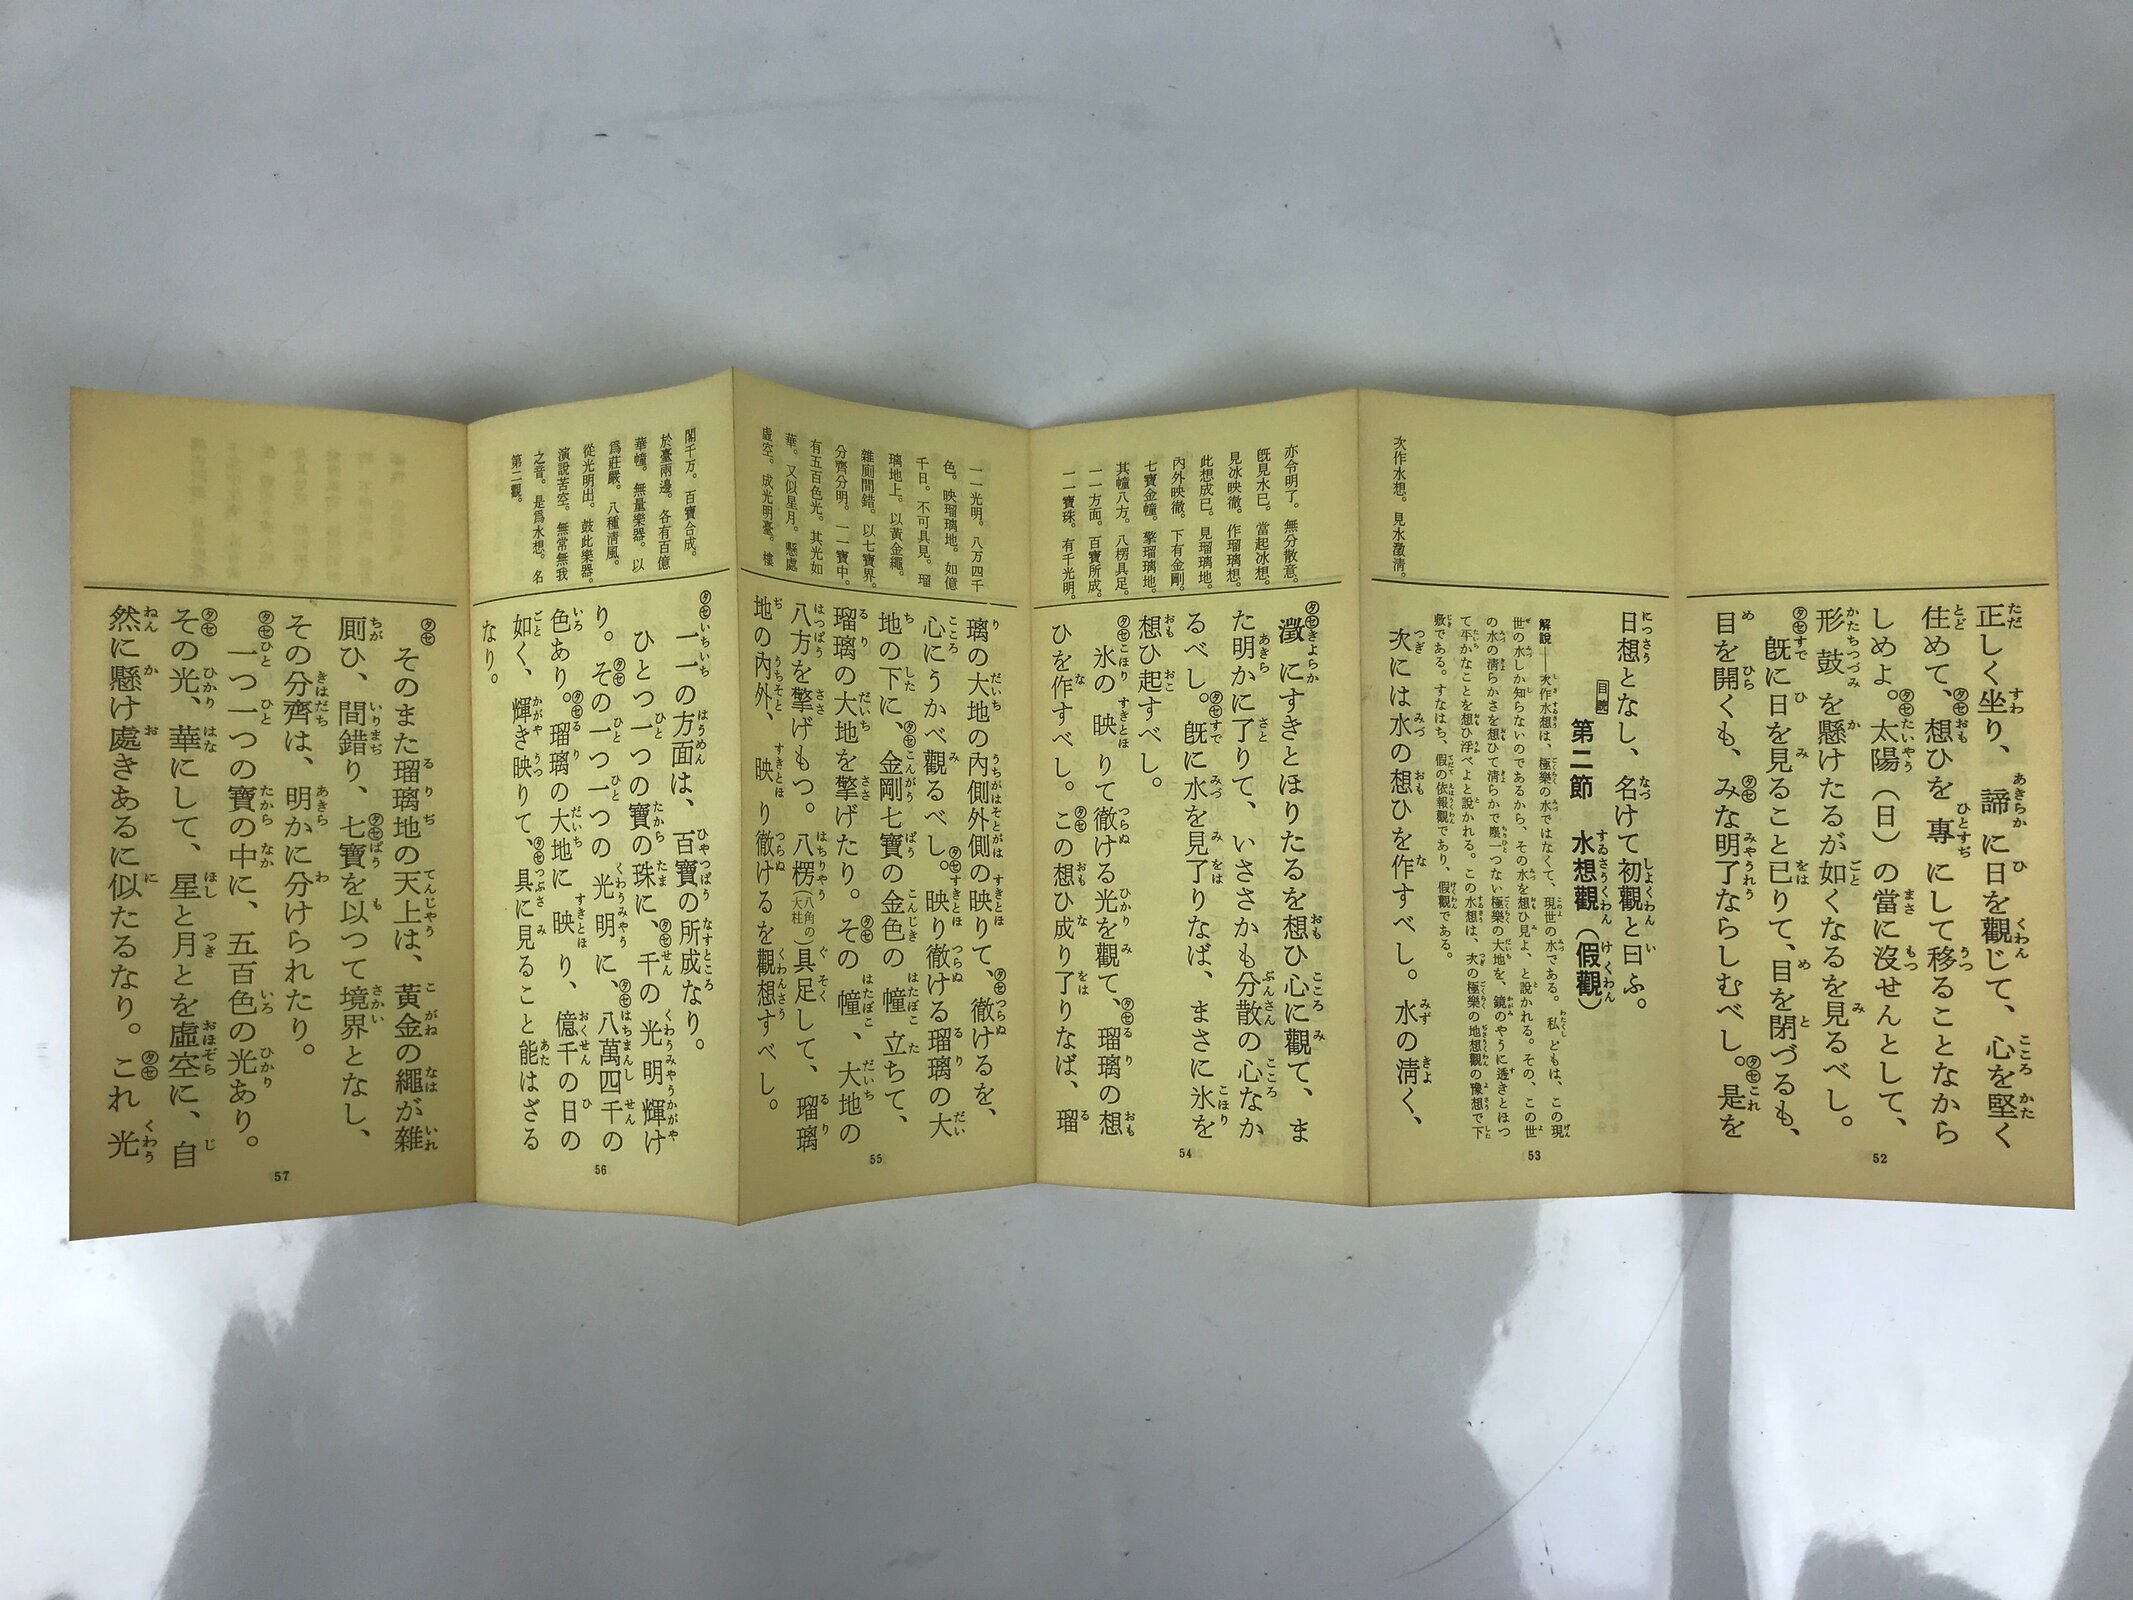 正しく坐り、諦に日を觀じて、心を堅く
住めて、想ひを專にして移ることなから
しめよ。太陽（日）の當に沒せんとして、
形鼓を懸けたるが如くなるを見るべし。
既に日を見ること已りて、目を閉づるも、
目を開くも、みな明了ならしむべし。是を
52
次作水想。見水澂清。
日想となし、名けて初觀と曰ふ。
第二節 水想觀（假觀）
解說——次作水想は、極樂の水ではなくて、現世の水である。私どもは、この現
世の水しか知らないのであるから、その水を想ひ見よ、と說かれる。その、この世
の水の清らかさを想ひて清らかで塵一つない極樂の大地を、鏡のやうに透きとほつ
て平かなことを想ひ浮べよと說かれる。この水想は、次の極樂の地想觀の豫想で下
敷である。すなはち、假の依報觀であり、假觀である。
次には水の想ひを作すべし。水の清く、
53
亦令明了。無分散意。
既見水已。當起冰想。
見冰映徹。作瑠璃想。
此想成已。見瑠璃地。
內外映徹。下有金剛。
七寶金幢。擎瑠璃地。
其幢八方。八楞具足。
一一方面。百寶所成。
一一寶珠。有千光明。
澂にすきとほりたるを想ひ心に觀て、ま
た明かに了りて、いささかも分散の心なか
るべし。既に水を見了りなば、まさに氷を
想ひ起すべし。
氷の映りて徹ける光を觀て、瑠璃の想
ひを作すべし。この想ひ成り了りなば、瑠
54
一一光明。八万四千
色。映瑠璃地。如億
千日。不可具見。瑠
璃地上。以黃金繩。
雜廁間錯。以七寶界。
分齊分明。一一寶中。
有五百色光。其光如
華。又似星月。懸處
虛空。成光明臺。樓
璃の大地の內側外側の映りて、徹けるを、
心にうかべ觀るべし。映り徹ける瑠璃の大
地の下に、金剛七寶の金色の幢立ちて、
瑠璃の大地を擎げたり。その幢、大地の
八方を擎げもつ。八楞（八角の大柱）具足して、瑠璃
地の內外、映り徹けるを觀想すべし。
55
閣千万。百寶合成。
於臺兩邊。各有百億
華幢。無量樂器。以
爲莊嚴。八種清風。
從光明出。鼓此樂器。
演說苦空。無常無我
之音。是爲水想。名
第二觀。
一一の方面は、百寶の所成なり。
ひとつ一つの寶の珠に、千の光明輝け
り。その一つ一つの光明に、八萬四千の
色あり。瑠璃の大地に映り、億千の日の
如く、輝き映りて、具に見ること能はざる
なり。
56
そのまた瑠璃地の天上は、黃金の繩が雜
廁ひ、間錯り、七寶を以つて境界となし、
その分齊は、明かに分けられたり。
一つ一つの寶の中に、五百色の光あり。
その光、華にして、星と月とを虛空に、自
然に懸け處きあるに似たるなり。これ光
57